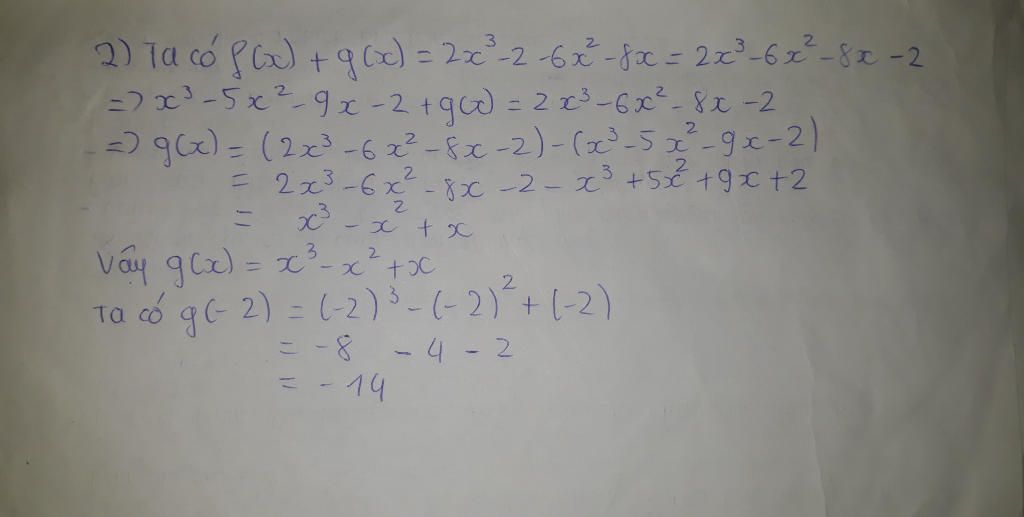 2) Ta có f(x) + g(x) = 2x³ - 2 - 6x² - 8x = 2x³ - 6x² - 8x - 2
=> x³ - 5x² - 9x - 2 + g(x) = 2x³ - 6x² - 8x - 2
=> g(x) = (2x³ - 6x² - 8x - 2) - (x³ - 5x² - 9x - 2)
= 2x³ - 6x² - 8x - 2 - x³ + 5x² + 9x + 2
= x³ - x² + x
Vậy g(x) = x³ - x² + x
Ta có g(-2) = (-2)³ - (-2)² + (-2)
= -8 - 4 - 2
= -14